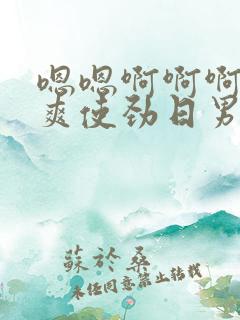 嗯嗯啊啊啊
爽使劲日男
蘇於桑
未经同意禁止转载